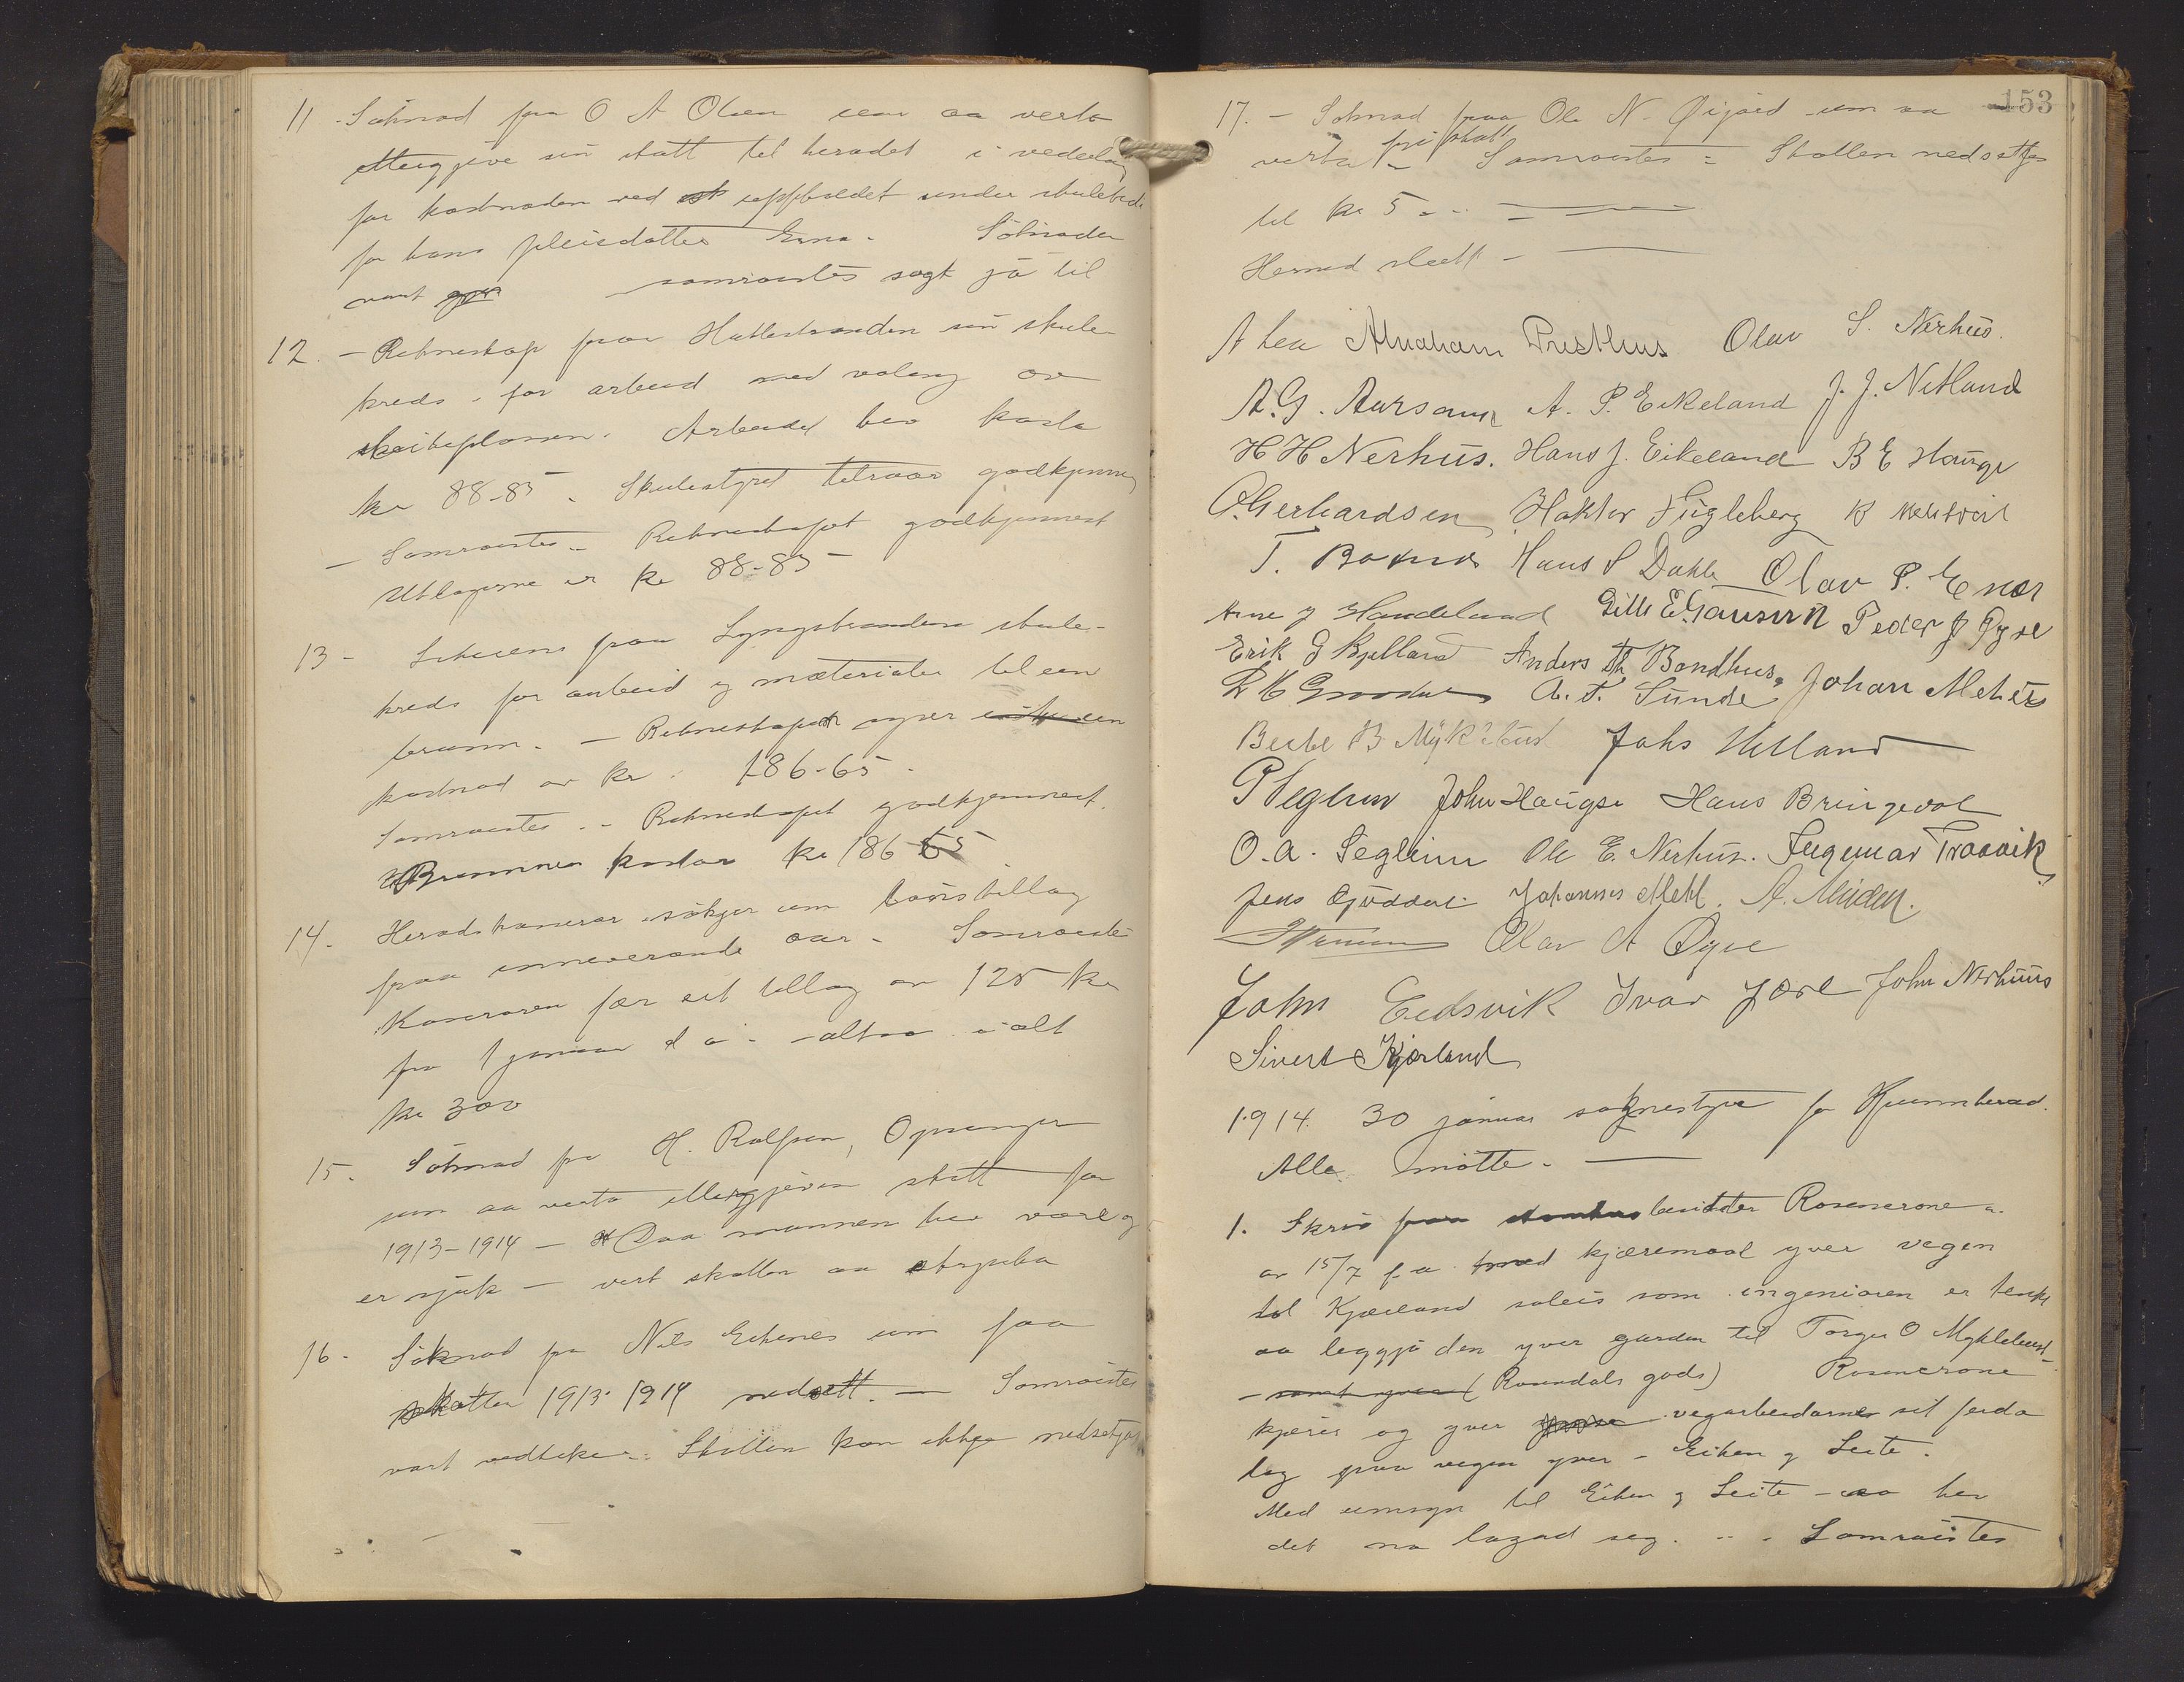 11 - Söknad fra O A Olsen um aa verta
ettergjeve sin skatt til heradet i vederlag
for kostnaden ved uppholdet under skuletid
for hans pleiedotter Erna. Söknaden
vart samröistes sagt ja til
12. - Rekneskap fraa Hattestranden sin skule
kreds - for arbeid med valing av
skuleplassen. Arbeidet hev kosta
kr 88-85. Skulestyret tilraar godkjenning
- Samröistes - Rekneskapet godkjennest
Utlogerne er kr 88-85
13 - Lyngstranden skule-
kreds for arbeid og materialer til ein
brunn. - Rekneskapet syner ein
kostnad av kr. 186-65.
Samröistes - Rekneskapet godkjennest.
Brunnen kostar kr 186-65.
14. Heradskasserar sökjer um lönstillag
fraa inneverande aar - Samröistes
Kasseraren fær eit tillag av 125 kr
fra 1 januar d a. - altso i alt
kr 300
15. Söknad fra H. Rolfsen, Opsanger
um aa verta ettergjeven skatt for
1913-1914 - Daa mannen hev vore og
er sjuk - vert skatten aa stryka
16. Söknad fra Nils Echnes um faa
skatten 1913-1914 nedsett. - Samröistes
vart vedteke -: Skatten kan ikkje nedsetjas
153
17. - Söknad fraa Ole N. Øigard um aa
verta fri skatt - Samröistes = Skatten nedsettes
til kr 5 - -
Hermed slutt -
A Lea Abraham Presthus Olav S. Nerhus.
A. G. Aarsand A. P. Eikeland J. J. Netland
H H Nerhus. Hans J. Eikeland B E Hauge
O. Gerhardsen Haktor Fugleberg K
T. Hans S Dahle Olav P. Enes
Arne J Handeland Gitle E. Gausvik Peder J Øyre
Erik G Kjelland Anders Th. Bondhus. Johan Mehus
A. T. Sunde
B. Myklebust Johs Helland
P Seglem John Haugse Hans Bringevol
O. A. Seglem Ole E. Nerhus. Ingemar Traavik
Jens Johannes Mehl. A.
Olav A Øyre
John Eidsvik Ivar Jære John Nerhuus
Sivert Kjærland
1914. 30 januar soknestyre for Kvinnherad.
Alle møtte. -
1. Skriv fraa besidder Rosencrone
av 15/7 f. a. med kjæremaal yver vegen
til Kjærland soleis som ingeniøren er tenkt
aa leggja den yver garden til Torger O Myklebust
- (Rosendals gods) Rosencrone
kjærer og yver vegarbeidarnes sit ferda
lag paa vegen yver - Eiken og Leite.
Med umsyn til Eiken og Leite - so hev
det no lagad seg. - - Samröistes